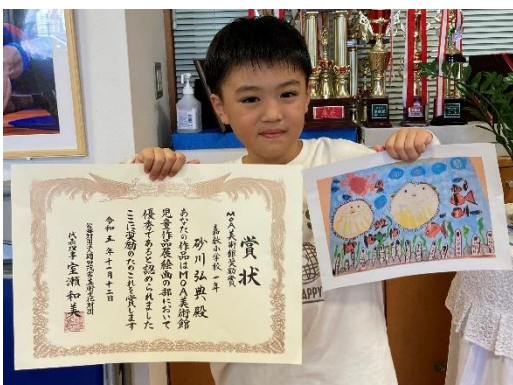 賞状
MOA美術館奨励賞
嘉数小学校一年
砂川弘典 殿
あなたの作品はMOA美術館
児童作品展絵画の部において
優秀であると認められました
ここに奨励のためこれを賞します
令和五年十一月十二日
公益財団法人岡田茂吉美術文化財団
代表理事 室瀬和美
HAPPY